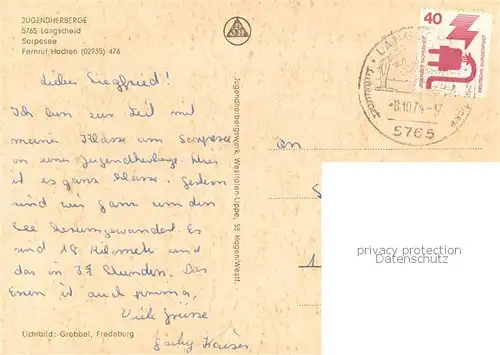 JUGENDHERBERGE
5765 Langscheid
Sorpesee
Fernruf Hachen (02935) 476
Lieber Siegfried!
Ich bin zur Zeit mit
meiner Klasse am Sorpesee
in einer Jugendherberge. Hier
ist es ganz klasse. Gestern
sind wir ganz um den
See herumgewandert. Es
sind 18 Kilometer und
das in 3¾ Stunden. Das
Essen ist auch prima.
Viele Grüsse
Lichtbild: Grobbel, Fredeburg
Jugendherbergswerk Westfalen-Lippe, 58 Hagen/Westf.
40
JEDERZEIT SICHERHEIT
DEUTSCHE BUNDESPOST
-8.10.74-17
5765
An
privacy protection
Datenschutz